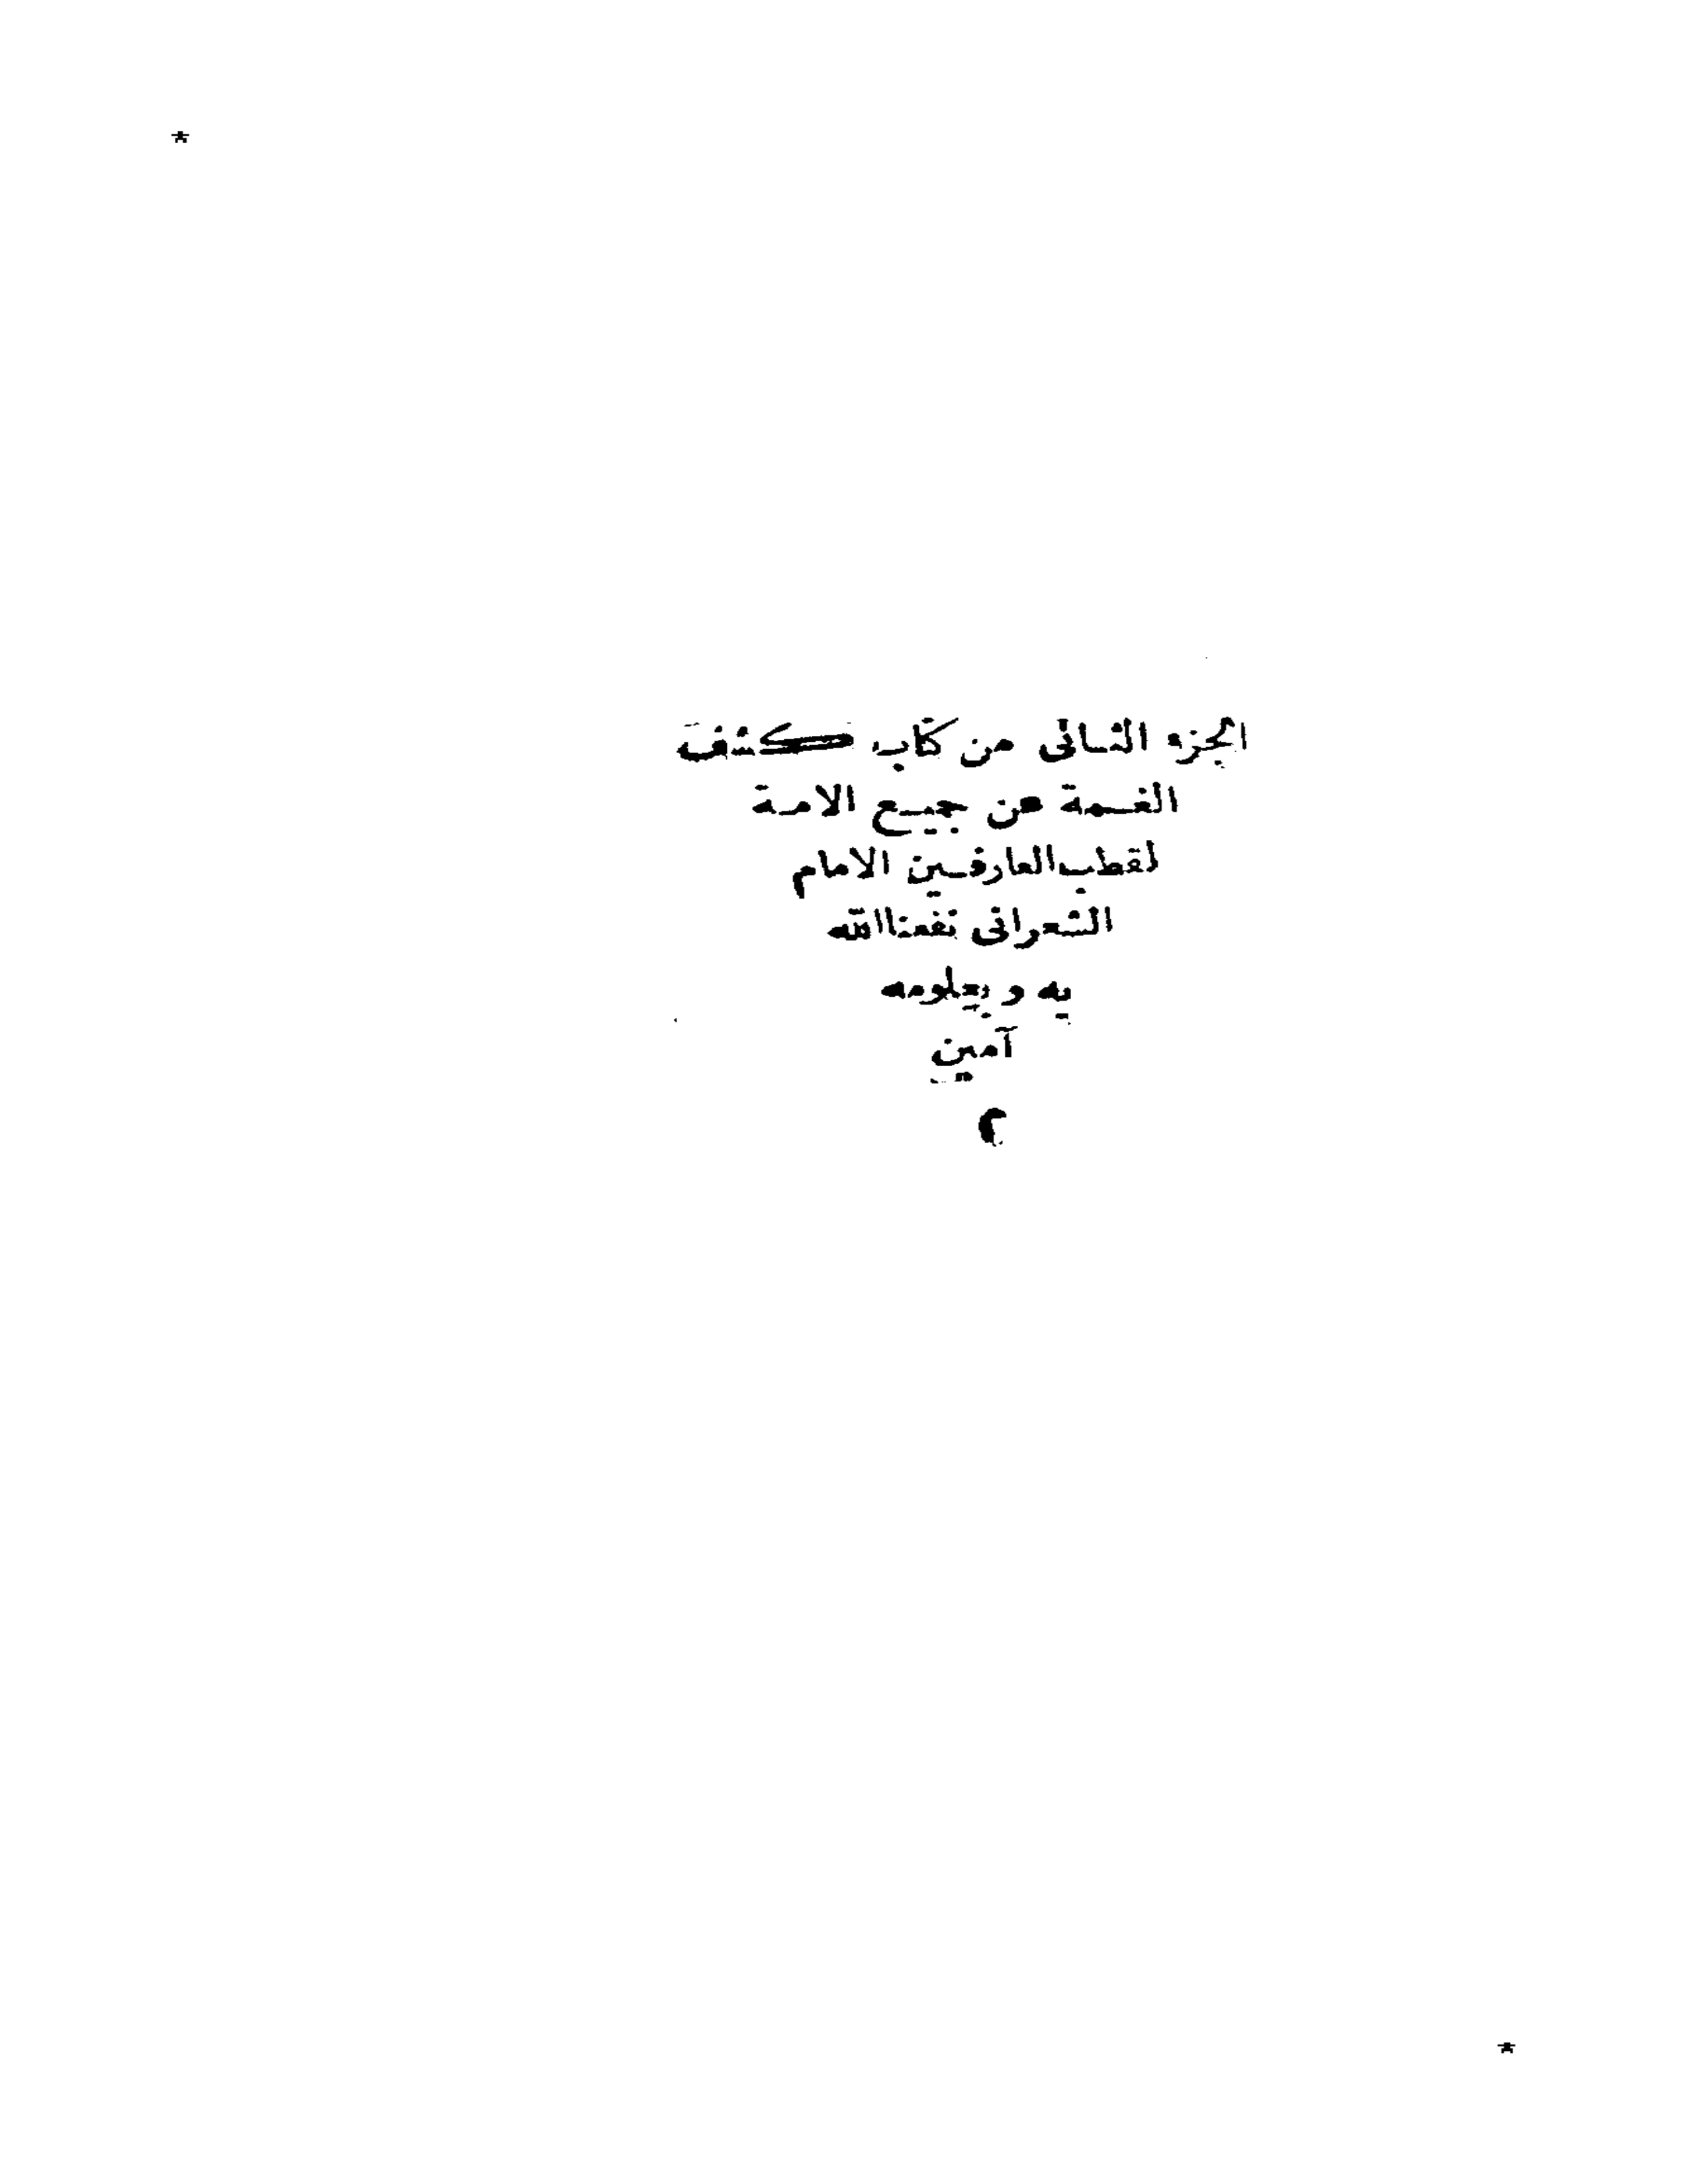 الجزء الثانى من كتاب كشف
الغمة عن جميع الامة
لقطب العارفين الامام
الشعرانى نفعنا الله
به و بعلومه
آمين
م